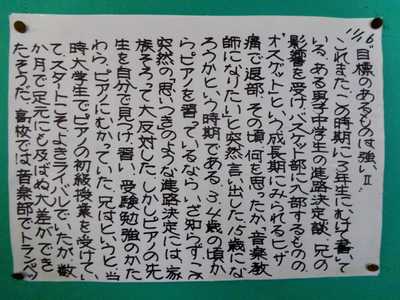 11/16
"目標のあるものは強い" II
これまた、この時期に3年生にむけて書いて
いる、ある男子中学生の進路決定談。兄の
影響を受けバスケット部に入部するものの
"オスグット"という成長期にみられるヒザ
痛で退部。その頃何を思ったか「音楽教
師になりたい」と突然言い出した。15歳にな
ろうかという時期である。3、4歳の頃か
らピアノを習っているなら、いざ知らず、
突然の『思いつき』のような進路決定には、家
族そろって大反対した。しかしピアノの先
生を自分で見つけ、習い、受験勉強のかた
わら、ピアノにむかっていた。兄はというと、当
時大学生でピアノの初級授業を受けてい
て、スタートこそよきライバルでいたが、数
か月で足元にも及ばぬ大差ができ
たそうだ。高校では音楽部でトランペッ